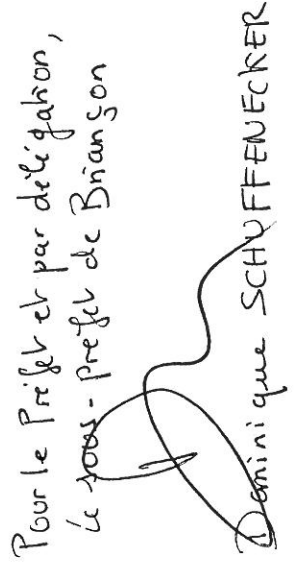 Pour le Préfet et par délégation,
le sous-préfet de Briançon
Dominique SCHUFFENECKER